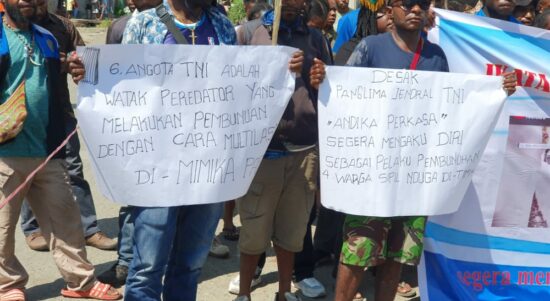 6. ANGOTA TNI ADALAH
WATAK PEREDATOR YANG
MELAKUKAN PEMBUNUAN
DENGAN CARA MULTILASI
DI - MIMIKA
DESAK
PANGLIMA JENDRAL TNI
"ANDIKA PERKASA"
SEGERA MENGAKU DIRI
SEBAGAI PELAKU PEMBUNUHAN
4 WARGA SPIL NDUGA DI-TIM
IKATA
segera men